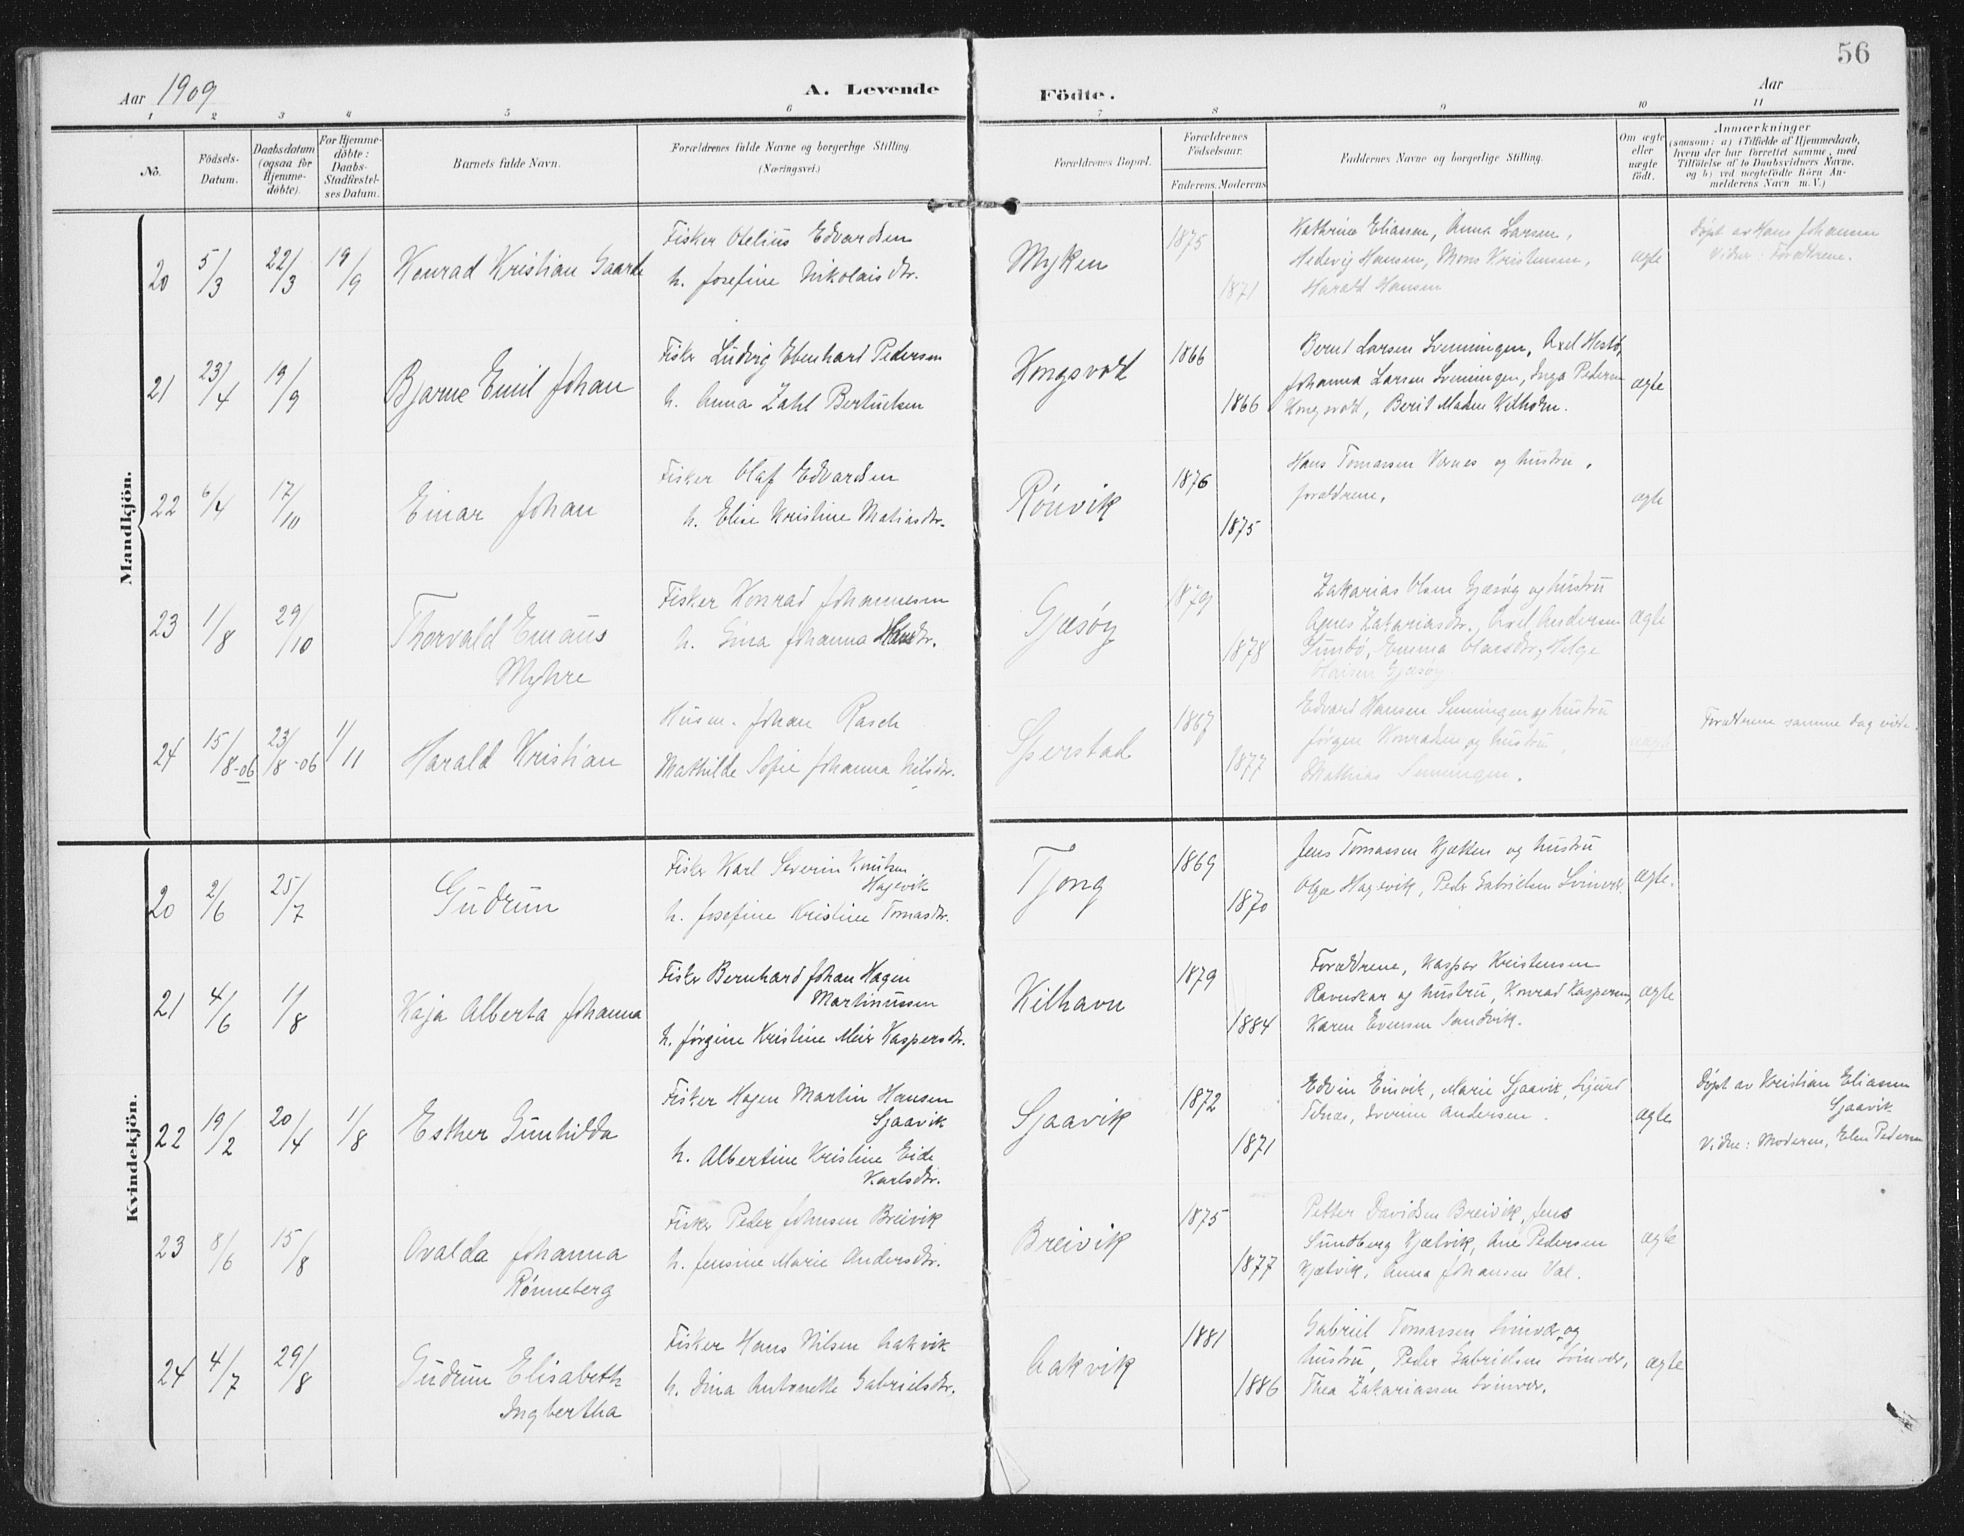 56
Aar 1909
A. Levende Födte.
Aar
1 2 3 4 5 6 7 8 9 10 11
No.
Födsels-Datum.
Daabsdatum (ogsaa for Hjemme-döbte).
For Hjemme-döbte: Daabs-Stadfæstel-ses Datum.
Barnets fulde Navn.
Forældrenes fulde Navne og borgerlige Stilling
(Næringsvei.)
Forældrenes Bopæl.
Forældrenes Födselsaar.
Faderens. Moderens
Faddernes Navne og borgerlige Stilling.
Om ægte eller uægte födt.
Anmærkninger
(saasom: a) (Tilfælde af Hjemmedaab, hvem der har forrettet samme, med Tilföielse af to Daabsvidners Navne, og b) ved uægtefödte Börn An-melderens Navn m. V.)
Mandkjön.
20 5/3 22/3 19/9 Konrad Kristian Gaarde
Fisker Otelius Edvardsen
h. Josefine Nikolaisdtr.
Myken 1875 1871
Kathrine Eliassen, Anna Larsen,
Hedevig Hansen, Mons Kristensen,
Harald Hansen
ægte
Döpt av Hans Johansen
Vidner: Forældrene.
21 23/4 19/9 Bjarne Emil Johan
Fisker Ludvig Ebenhard Pedersen
h. Anna Zahl Bertheusen
Kongsvold 1866 1866
Bernt Larsen Svenningen, Axel
Johanna Larsen Svenningen, Inga Pedersen
Kongsvold, Berit Madsen
ægte
22 6/4 17/10 Einar Johan
Fisker Olaf Edvardsen
h. Elise Kristine Matiasdtr.
Rönvik 1876 1875
Hans Tomassen Værnes og hustru,
forældrene.
ægte
23 1/8 29/10 Thorvald Emaus
Myhre
Fisker Konrad Johannesen
h. Gina Johanna Hansdtr.
Gjæsöy 1879 1878
Zakarias Olsen Gjæsöy og hustru
Agnes Zakariasdtr., Axel Andersen
Sundö, Emma Olaisdtr, Helge
Hansen Gjæsöy
ægte
24 15/8-06 23/8-06 1/11 Harald Kristian
Husm. Johan Rasch
Mathilde Sofie Johanna Nilsdtr.
Sperstad 1867 1877
Edvard Hansen Svenningen og hustru
Jörgen Konradsen og hustru,
Mathias Svenningen.
uægte
Forældrene samme dag viede.
Kvindekjön.
20 2/6 25/7 Gudrun
Fisker Karl Severin Knutsen
Hagevik
h. Josefine Kristine Tomasdtr.
Tjong 1869 1870
Jens Tomassen Kjækken og hustru
Olga Hagevik, Peder Gabrielsen Svinvær.
ægte.
21 4/6 1/8 Kaja Alberta Johanna
Fisker Bernhard Johan Hagen
Martinussen
h. Jörgine Kristine Meir Kaspersdtr.
Kilhavn 1879 1884
Forældrene, Kaspar Kristensen
Ravnskar og hustru, Konrad Kaspersen,
Karen Evensen Sandvik.
ægte
22 19/2 20/4 1/8 Esther Gunhilda
Fisker Hagen Martin Hansen
Sjaavik
h. Albertine Kristine Eide
Karlsdtr.
Sjaavik 1872 1871
Edvin Einvik, Marie Sjaavik, Sjurd
Tobias, Severine Andersen.
ægte
Döpt av Kristian Eliassen
Sjaavik
Vidne: Moderen, Elen Pedersen
23 8/6 15/8 Ovalda Johanna
Rönneberg
Fisker Peder Johnsen Breivik
h. Jensine Marie Andersdtr.
Breivik 1875 1877
Petter Davidsen Breivik, Jens
Sundberg Kjelvik, Ane Pedersen
Kjelvik, Anna Johansen Val.
ægte
24 4/7 29/8 Gudrun Elisabeth
Ingbertha
Fisker Hans Nilsen Aakvik
h. Dina Antonette Gabrielsdtr.
Aakvik 1881 1886
Gabriel Tomassen Svinvær og
hustru, Peder Gabrielsen Svinvær,
Thea Zakariassen Svinvær.
ægte